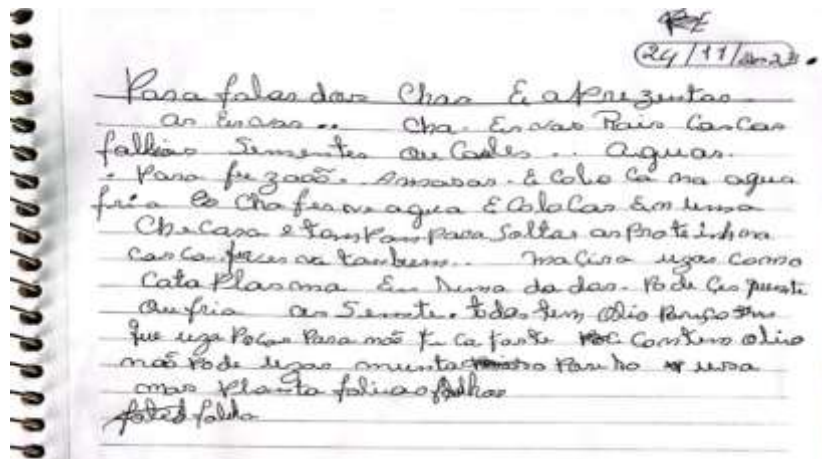 24/11/2023.
Para falar dos Chas E aprezentar
as Ervas.. Cha. Ervas Rais Cascas
folhias Sementes ou Caules.. aguas.
. Para fuzaoõ. amasar. E colo ca na agua
fria Eo Cha ferve agua E Colocar Em uma
Checara e tampar para Soltar as Proteinhna
casca ferver tambem.. usar como
Cata Plasma Em da das. Pode Ces quente
ou fria as Semte. todas tem Olio Porisso tem
que uza Pocas Para não fi ca forte Contem olio
não Pode uzar munta Para
mas Planta folhas